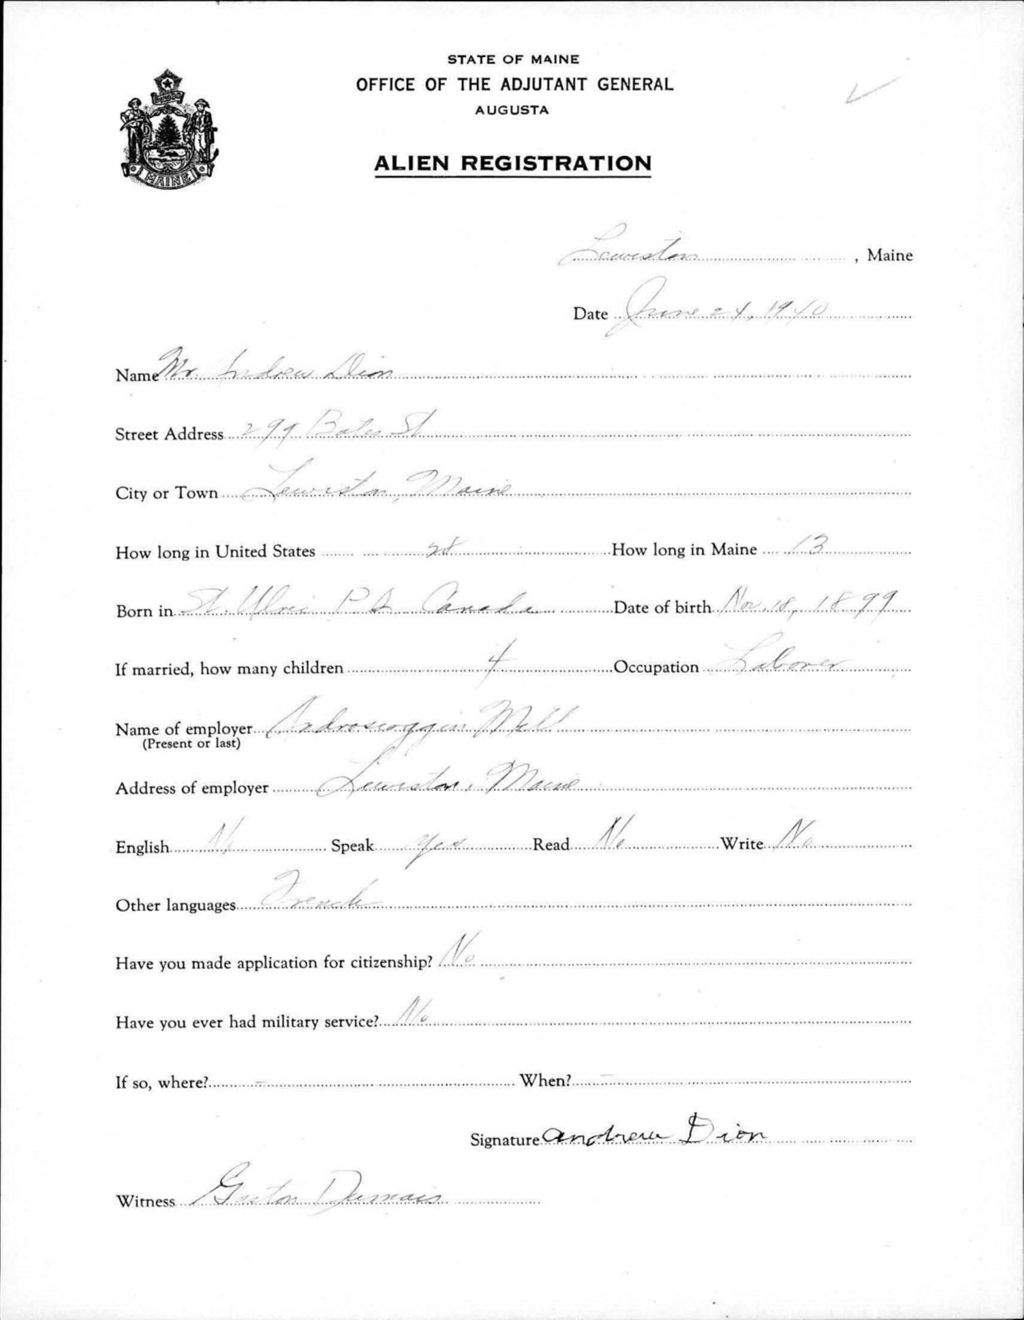 STATE OF MAINE
OFFICE OF THE ADJUTANT GENERAL
AUGUSTA
ALIEN REGISTRATION
MAINE
Lewiston, Maine
Date June 24, 1940
Name Mr. Andrew Dion
Street Address 299 Bates St
City or Town Lewiston, Maine
How long in United States How long in Maine 13
Born in St. Ulric P Q Canada Date of birth Nov. 18, 1899
If married, how many children 4 Occupation Laborer
Name of employer Androscoggin Mill
(Present or last)
Address of employer Lewiston, Maine
English No Speak Yes Read No Write No
Other languages French
Have you made application for citizenship? No
Have you ever had military service? No
If so, where? - When? -
Signature Andrew Dion
Witness Gaston Dumais